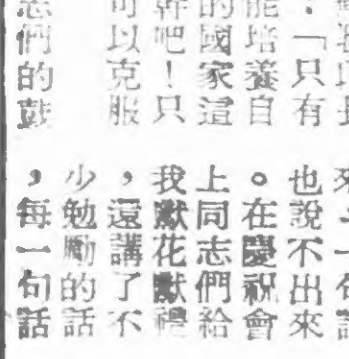 ：「只有
能培養自
的國家這
幹吧！只
可以克服
志們的鼓
一句
也說不出來
。在慶祝會
上同志們給
我獻花獻禮
，還講了不
少勉勵的話
，每一句話